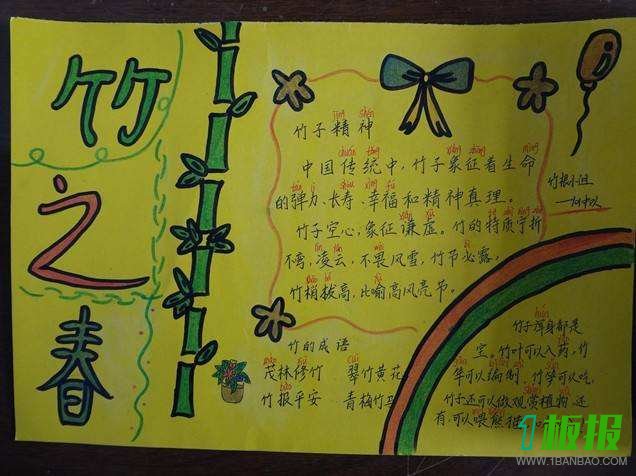 竹之春
竹子精神
中国传统中，竹子象征着生命
的弹力、长寿、幸福和精神真理。
竹子空心，象征谦虚。竹的特质宁折
不弯，凌云，不畏风雪，竹节必露，
竹梢拔高，比喻高风亮节。
竹的成语
茂林修竹 翠竹黄花
竹报平安 青梅竹马
竹子浑身都是
宝，竹叶可以入药，竹
可以编制，竹笋可以吃，
竹子还可以做观赏植物，还
有，可以喂熊猫
1板报
WWW.1BANBAO.COM